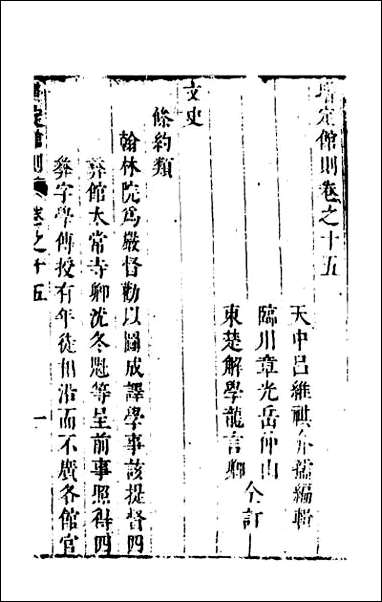 增定館則卷之十五
天中呂維祺介孺編輯
臨川章光岳仲山
東楚解學龍言卿
仝訂
文史
條約類
翰林院爲嚴督勸以圖成譯學事該提督四
彝館太常寺卿沈冬魁等呈前事照得四
彝字學傳授有年徒相沿而不廣各館官
增定館則 卷之十五 一